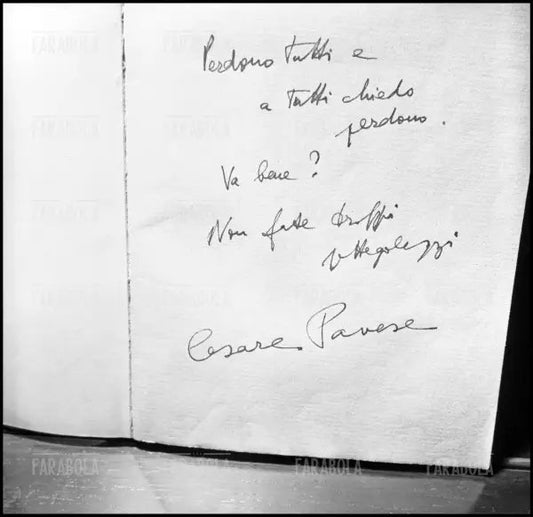 Perdono tutti e
a tutti chiedo
perdono.
Va bene?
Non fate troppi
pettegolezzi
Cesare Pavese
FARABOLA
FARABOLA
FARABOLA
FARABOLA
FARABOLA
FARABOLA